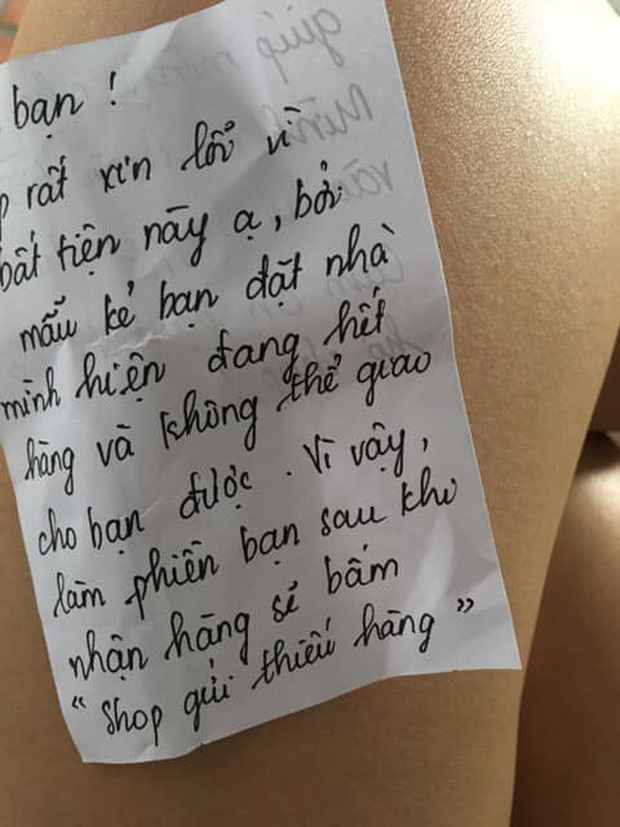 bạn !
rất xin lỗi vì
bất tiện này ạ, bởi
mẫu kẻ bạn đặt nhà
mình hiện đang hết
hàng và không thể giao
cho bạn được. Vì vậy,
làm phiền bạn sau khi
nhận hàng sẽ bấm
"Shop gửi thiếu hàng"